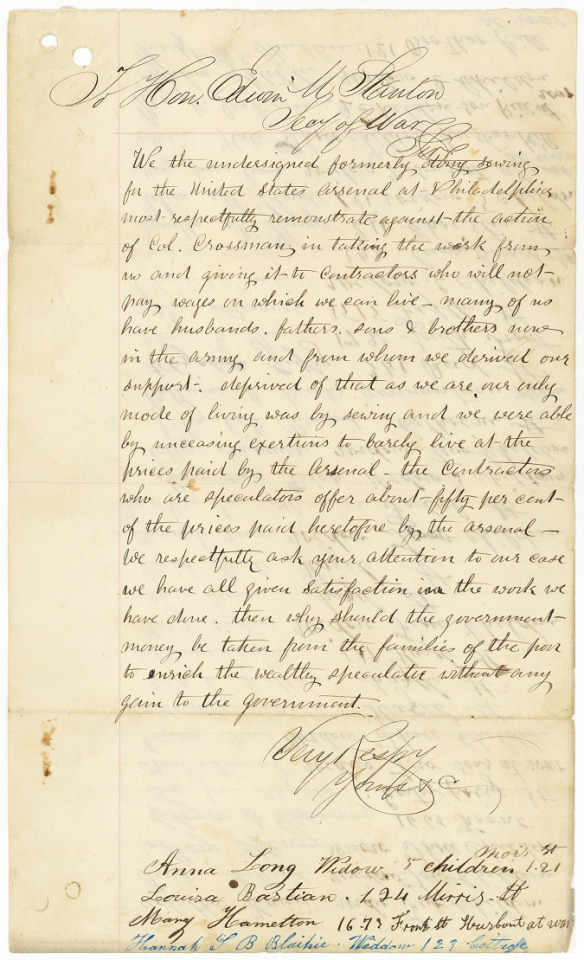 To Hon. Edwin M Stanton
Secy of War
Sir
We the undersigned formerly doing sewing
for the United States arsenal at Philadelphia
most respectfully remonstrate against the action
of Col. Crossman, in taking the work from
us and giving it to contractors who will not
pay wages on which we can live - many of us
have husbands, fathers, sons & brothers now
in the army and from whom we derived our
support. deprived of that as we are our only
mode of living was by sewing and we were able
by unceasing exertions to barely live at the
prices paid by the arsenal - the Contractors
who are speculators offer about fifty per cent
of the prices paid heretofore by the arsenal -
We respectfully ask your attention to our case
we have all given satisfaction in the work we
have done. then why should the government
money be taken from the families of the poor
to enrich the wealthy speculator without any
gain to the government.
Very Respy
Yours &c
Anna Long Widow. 5 children 121
Louisa Bastian. 124 Mirris St
Mary Hamelton 1673 Front St Husbant at war
Hannah S B Blaikie. Widdow 123